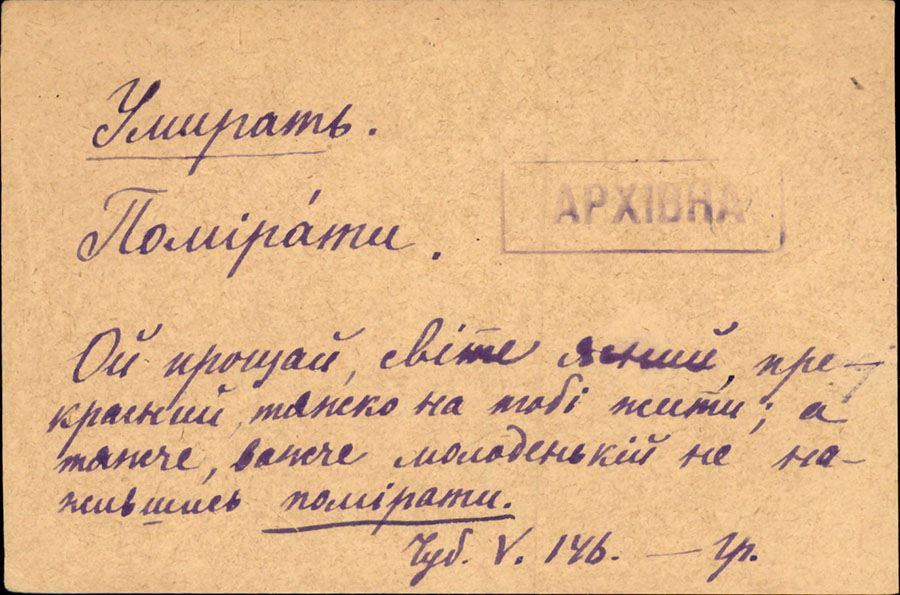 Умирать.
АРХІВНА
Помірáти.
Ой прощай, світе ясний, пре-
красний, тяжко на тобі жити; а
тяжче, важче молоденькій не на-
жившись помірати.
Чуб. V. 146. — Гр.